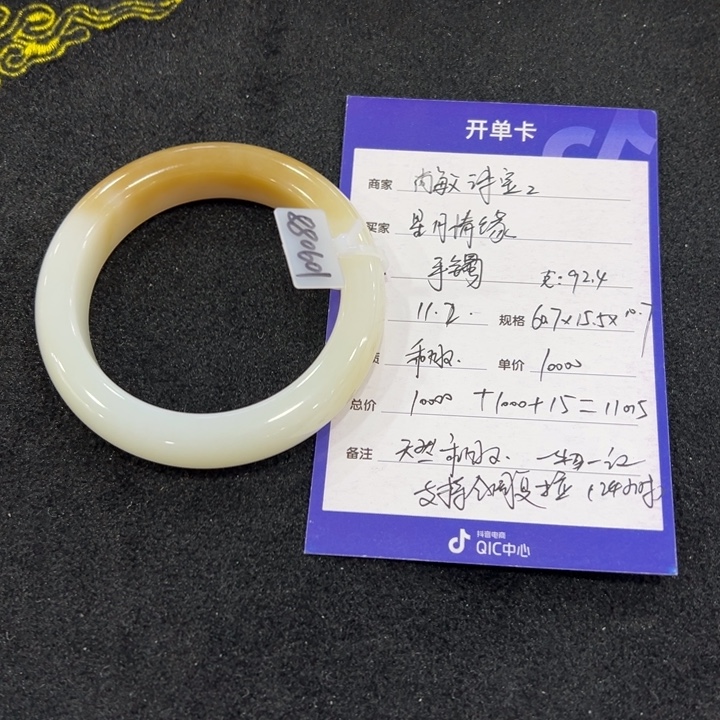 开单卡
商家 尚敏珠宝2
买家 星月情缘
手镯 克:92.4
11.2 规格 60.7x15.5x10.7
和田玉. 单价 10000
总价 10000 +1000+15=11015
备注 天然和田玉. 一物一证
支持全国复检(24小时)
抖音电商
QIC中心